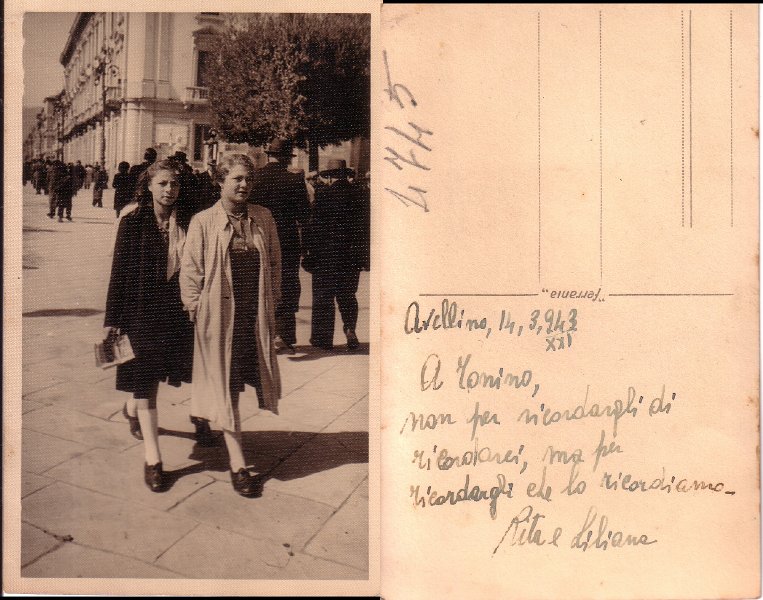 4745
"Ferrania"
Avellino, 14, 3, 943
XXI
A Tonino,
non per ricordargli di
ricordarci, ma per
ricordargli che lo ricordiamo-
Rita e Liliana